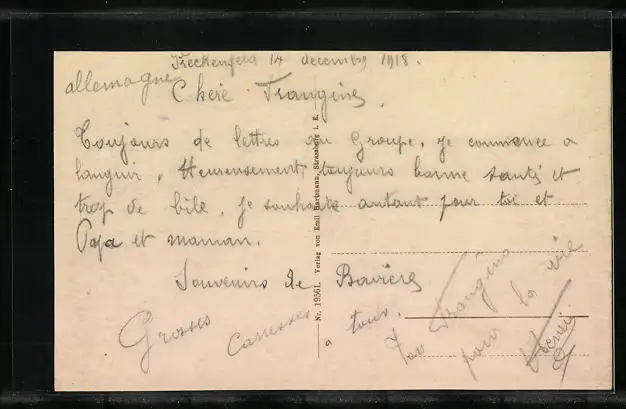 Freckenfeld 14 decembre 1918.
allemagne
Chère Frangine,
Toujours de lettres au Groupe, je commence a
languir, Heureusement, toujours bonne santé et
trop de bile, je souhaite autant pour toi et
Papa et maman.
Souvenirs de Bavière
Grosses Caresses a tous.
Ton Frangin
pour la vie
Nr. 19561. Verlag von Emil Hartmann, Strassburg i. E.